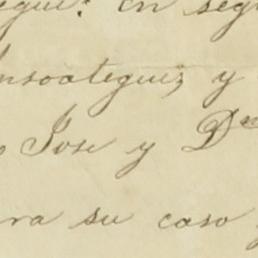 egui. En seg
nsoategui, y
Jose y Dn
ra su caso y